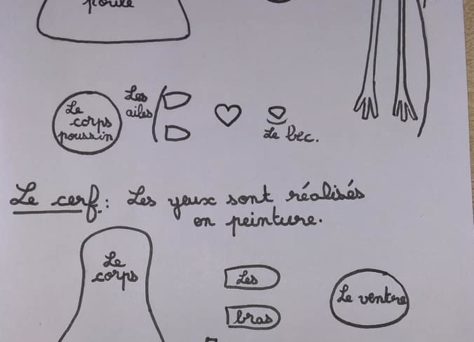 poule
Les
ailes
Le
corps
poussin
Le bec.
Le cerf : Les yeux sont réalisés
en peinture.
Le
corps
Les
bras
Le ventre